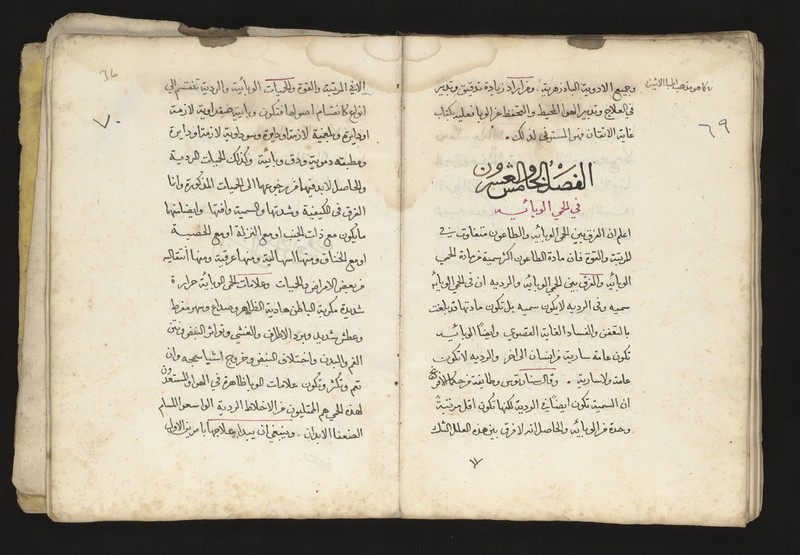 وجميع الادوية البادزهرية. ومن اراد زيادة تدقيق وتدبير
في العلاج وتدبير الهوا المحيط والتحفظ عن الوبا فعليه بكتاب
غاية الاتقان فهو المستوفى لذلك.
الفصل الخامس والعشرون
في الحمى الوبائية
اعلم ان الفرق بين الحمى الوبائية والطاعون متفاوت في
المرتبة والقوة فان مادة الطاعون اكثر سمية من مادة الحمى
الوبائية والفرق بين الحمى الوبائية والردية ان في الحمى الوبائية
سمية وفي الردية لا يكون سمية بل تكون مادتها قد بلغت
بالتعفن والفساد الغاية القصوى وايضا الوبائية
تكون عامة سارية من انسان الى اخر والردية لا تكون
عامة ولا سارية. وقال سنارتوس وطايفة من حكما الافرنج
ان السمية تكون ايضا في الردية لكنها تكون اقل مرتبة
وحدة من الوبائية والحاصل انه لا فرق بين هذه العلل الثلث
٦٩
٧٠
36
الا في المرتبة والقوة والحميات الوبائية والردية تنقسم الى
انواع كانقسام اصولها فتكون وبائية صفراوية لازمة
او دايرة وبلغمية لازمة او دايرة وسوداوية لازمة او دايرة
ومطبقه دموية ودق وبائية وكذلك الحميات الردية
والحاصل لا بد فيها من رجوعها الى الحميات المذكورة وانما
الفرق في الكيفية وشدتها والسمية وافتها وايضا منها
ما يكون مع ذات الجنب او مع النزلة او مع الحصبة
او مع الخناق ومنها اسهالية ومنها عرقية ومنها انتقاليه
من بعض الامراض والحميات وعلامات الحمى الوبائية حرارة
شديدة مكربة الباطن هادية الظاهر وصداع وسهر مفرط
وعطش شديد وبرد الاطراف والغشي وتواتر النبض ونتن
الفم والبدن واختلاف النبض وخروج اشيا سمجه وان
تعم وتكثر وتكون علامات الوبا ظاهرة في الهوا والمستعدون
لهذه الحمى هم الممتليون من الاخلاط الردية الواسعوا المسام
الضعفا الابدان. وينبغي ان يبدا في علاجها بامرين الاول